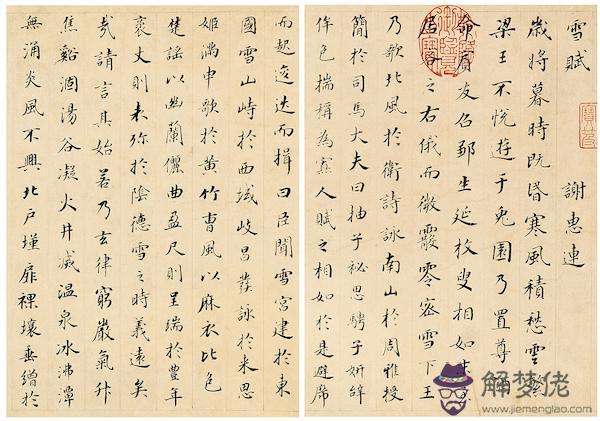 雪賦 謝惠連
歲將暮時既昏寒風積愁雲繁
梁王不悅遊于兔園乃置尊酒
命賓友召鄒生延枚叟相如末至
居客之右俄而微霰零密雪下王
乃歌北風於衛詩詠南山於周雅授
簡於司馬大夫曰抽子祕思騁子妍辭
侔色揣稱為寡人賦之相如於是避席
而起逡巡而揖曰臣聞雪宮建於東
國雪山峙於西域岐昌發詠於來思
姬滿申歌於黃竹曹風以麻衣比色
楚謠以幽蘭儷曲盈尺則呈瑞於豐年
袤丈則表沴於陰德雪之時義遠矣
哉請言其始若乃玄律窮嚴氣升
焦谿涸湯谷凝火井滅温泉冰沸潭
無涌炎風不興北戶墐扉裸壤垂繒於
解梦佬
www.jiemenglao.com